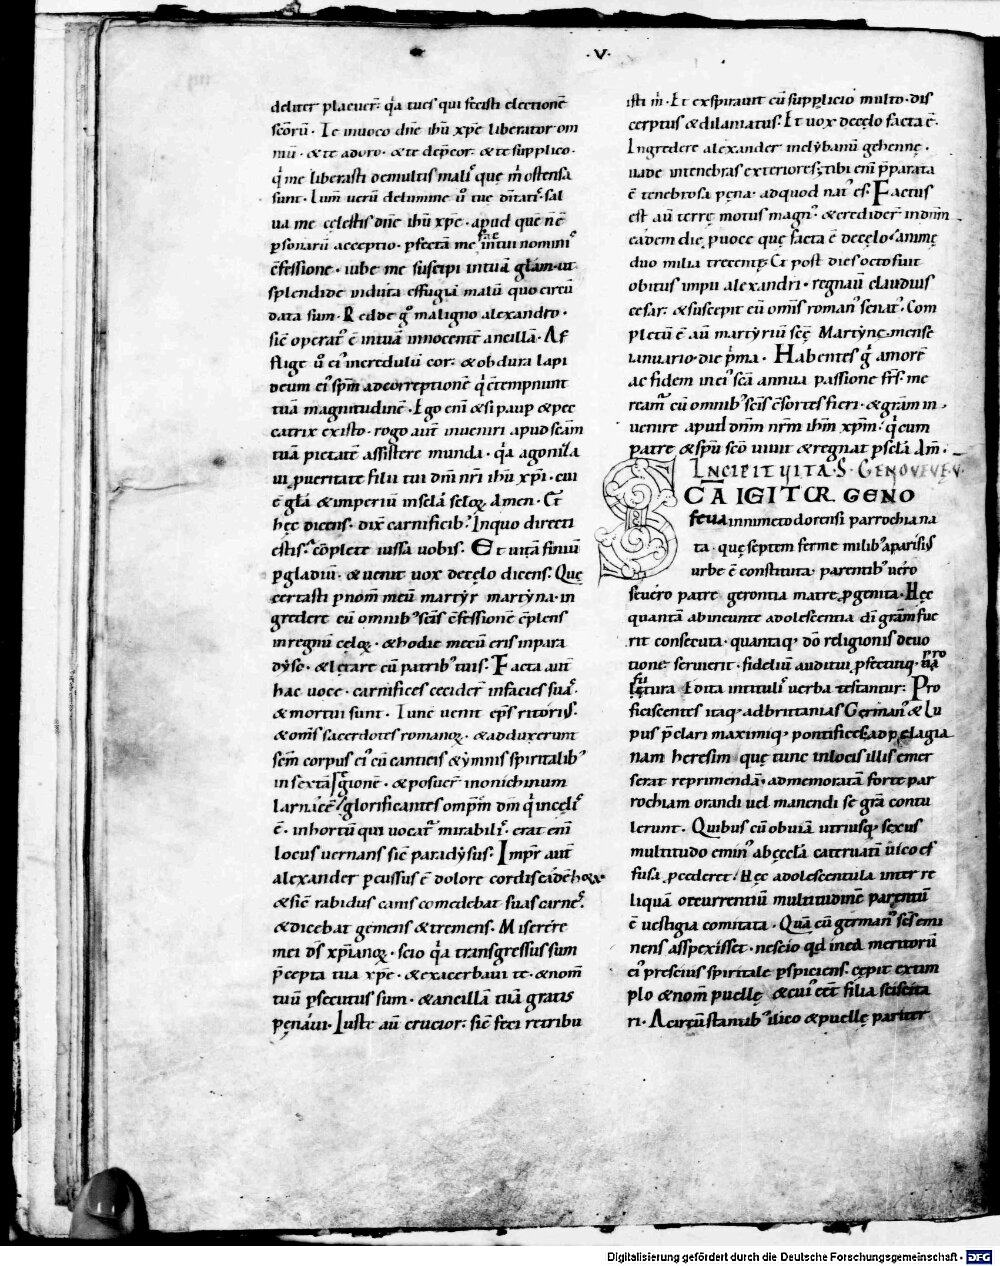 ·V·
deliter placuer̄· q̄a tu es qui fecisti electionē
sc̄orū· Te inuoco dn̄e ihū xp̄e liberator om
niū· & te adoro· & te dep̄cor· & te supplico·
q̄ me liberasti demultis malis quę m̄ ostensa
sunt· Lum̄ uerū
ua me cęlestis dn̄e ihū xp̄e· apud quē n̄ ē
p̱sonarū acceptio· p̱fectā me fac intui nominis
c̄fessione· iube me suscipi intuā gl̄am· ut
splendide induta effugiā malū quo circū
data sum· Redde g̊ maligno alexandro·
sic̄ operatus ē intuā innocentē ancillā· Af
flige ū eius incredulum cor· & obdura lapi
deum eius sp̄m adcorreptionē q̄ c̄tempnunt
tuā magnitudinē· Ego eni & si paup̱ & pec
catrix existo· rogo aut̄ inueniri apud sc̄am
tuā pietatē assistere munda· q̄a agonizaui
ꝓ ueritate filii tui dn̄i nr̄i ihū xp̄i· cui
ē gl̄a & imperiū insc̄la sc̄loꝝ Amen· Et
hęc dicens· dix̄ carnificibus· Inquo directi
estis· cōplete iussa uobis· Et uitā finiuī
p̱ gladiū· & uenit uox decęlo dicens· Quę
certasti ꝓ nom̄ meū martyr martyna· in
gredere cū omnibus sc̄is c̄fessionē c̄plens
in regnū cęloꝝ· & hodie mecū eris in para
dyso· & lętare cū patribus tuis· Facta aut̄
hac uoce· carnifices cecider̄ infacies suas·
& mortui sunt· Tunc uenit ep̄s ritoriis·
& om̄s sacerdotes romanoꝝ· & adduxerunt
sc̄m corpus eius cū canticis & ymnis spiritalibus
in sextā regionē· & posuer̄ in onichinum
larnacē· glorificantes om̄p̄m dm̄ q̄ incęlis
ē· in hortū qui uocatur mirabilis· erat eni
locus uernans sic̄ paradysus· Imp̄r aut̄
alexander p̱cussus ē dolore cordis eadē hora
& sic̄ rabidus canis comedebat suas carnes·
& dicebat gemens & tremens· Miserere
mei ds̄ xp̄ianoꝝ· scio q̄a transgressus sum
p̄cepta tua xp̄e· & exacerbaui te· & nom̄
tuū p̱secutus sum· & ancillā tuā gratis
pęnaui· Iuste aū crucior· sic̄ feci retribu
isti m̄· Et exspirauit cū supplicio multo· dis
cerptus & dilaniatus· Et uox decęlo facta ē·
Ingredere alexander inclybanū gehennę·
uade intenebras exteriores; tibi eni p̄parata
ē tenebrosa pęna· adquod natus es· Factus
est aū terrę motus magnus· & crediderū in dn̄m
eadem die ꝓ uoce quę facta ē decęlo· animę
duo milia trecentę· Et post dies octo fuit
obitus impii alexandri· regnaū claudius
cesar· & suscepit eū om̄is romanus senatus· Com
pletū ē aū martyriū sc̄ę Martynę· mense
ianuario· die p̄ma· Habentes g̊ amorē
ac fidem in eius sc̄a annua passione fr̄s· me
reamur cū omnibus sc̄is c̄sortes fieri· & gr̄am in
uenire apud dn̄m nr̄m ihm̄ xp̄m· q̄ cum
patre & sp̄u sc̄o uiuit & regnat p̱ sc̄la· Am̄·
INCIPIT VITA· S· GENOVEVĘ V·
SCĀ IGITUR GENO
feua innimetodorensi parrochia na
ta· quę septem ferme milibus aparisiis
urbe ē constituta· parentibus uero
seuero patre gerontia matre ꝓgenita· Hęc
quantā abineunte adolescentia dī gr̄am fue
rit consecuta· quantaq; dō religionis deuo
tione seruierit· fidelium auditui ꝓfecturaq; na
tura Edita intitulis uerba testantur· Pro
ficiscentes itaq; adbrittanias Germanus & Lu
pus p̄clari maximiq; pontifices ad pelagia
nam heresim quę tunc inlocis illis emer
serat reprimendā· admemoratā forte par
rochiam orandi uel manendi se gr̄a contu
lerunt· Quibus cū obuiā utriusq; sexus
multitudo eminus abęcclā cateruatī uico ef
fusa p̱cederet· Hęc adolescentula inter re
liquā occurrentiū multitudinē parentū
ē uestigia comitata· Quā cū germanus sc̄s emi
nens asspexisset· nescio qd̄ in ea meritorū
eius prescius spiritale p̱spiciens· cępit extim
plo & nom̄ puellę & cuius eēt filia scisscita
ri· A circūstantibus ilico & puellę pariter